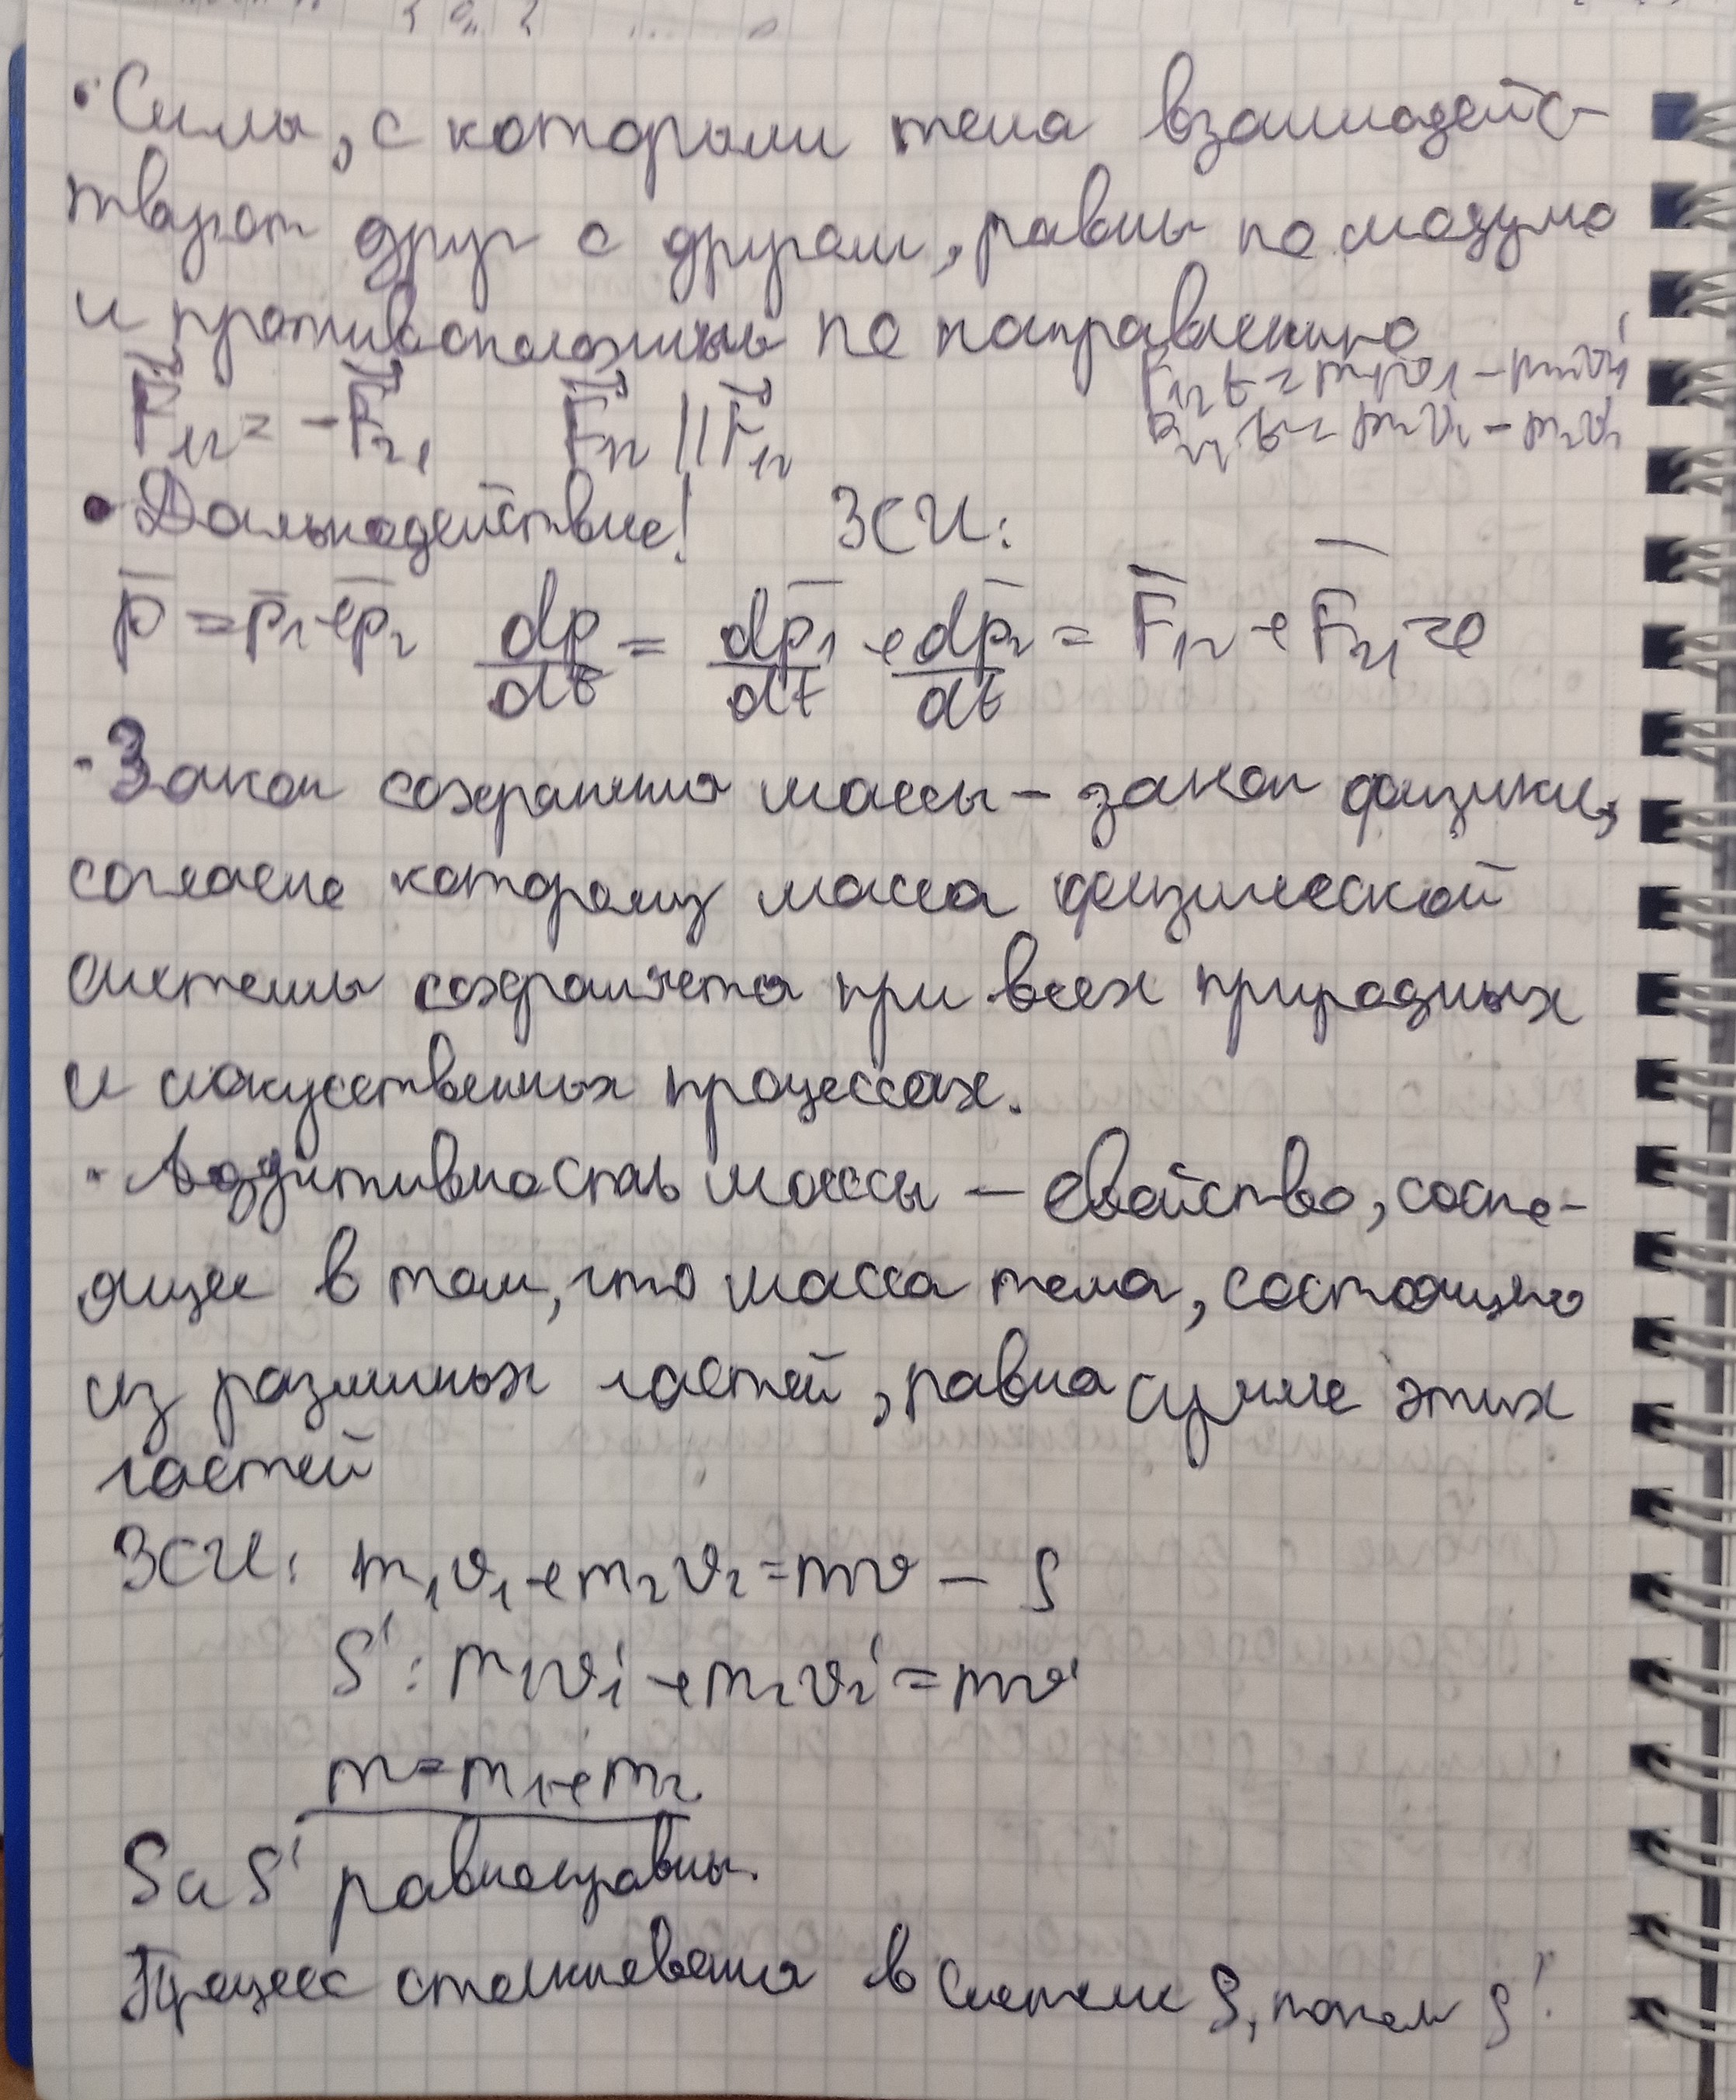 • Силы, с которыми тела взаимодейс-
твуют друг с другом, равны по модулю
и противоположны по направлению
F₁₂t = m₁v₁ - m₁v₁'
F₂₁t = m₂v₂ - m₂v₂'
F⃗₁₂ = -F⃗₂₁ F⃗₁₂ || F⃗₁₂
• Дальнодействие! ЗСИ:
p̅ = p̅₁ + p̅₂ dp/dt = dp̅₁/dt + dp̅₂/dt = F̅₁₂ + F̅₂₁ = 0
- Закон сохранения массы – закон физики,
согласно которому масса физической
системы сохраняется при всех природных
и искусственных процессах.
• Аддитивность массы – свойство, состо-
ящее в том, что масса тела, состоящего
из различных частей, равна сумме этих
частей
ЗСИ: m₁v₁ + m₂v₂ = mv – S
S': m₁v₁' + m₂v₂' = mv'
m = m₁ + m₂
S и S' равноправны.
Процесс столкновения в системе S, потом S'.